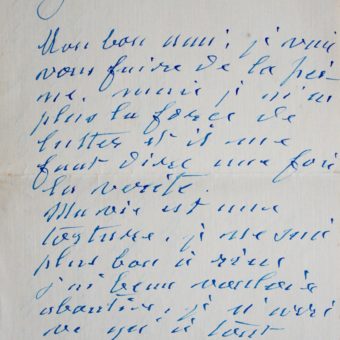 Mon bon ami, je vais
vous faire de la pei
ne, mais je n'ai
plus la force de
lutter et il me
faut dire une fois
la verité.
Ma vie est une
torture, je ne suis
plus bon à rien
j'ai beau vouloir
aboutir, je n'arri
ve qu'à tout